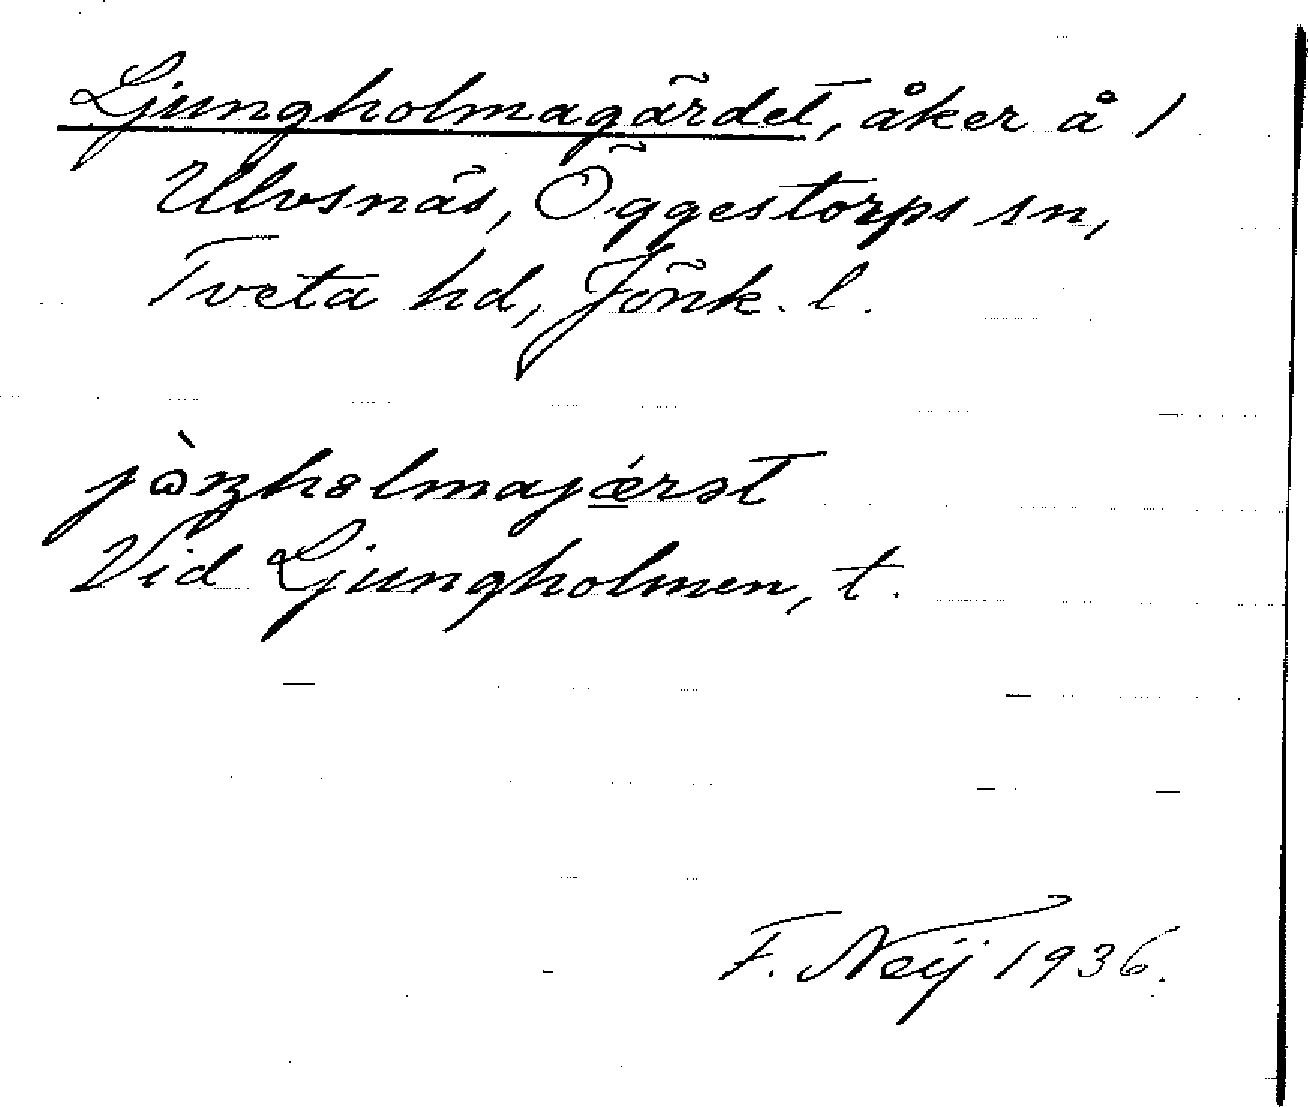 Ljungholmagärdet, åker å 1
Ulvsnäs, Öggestorps sn,
Tveta hd, Jönk. l.
Vid Ljungholmen, t.
F. Neij 1936.